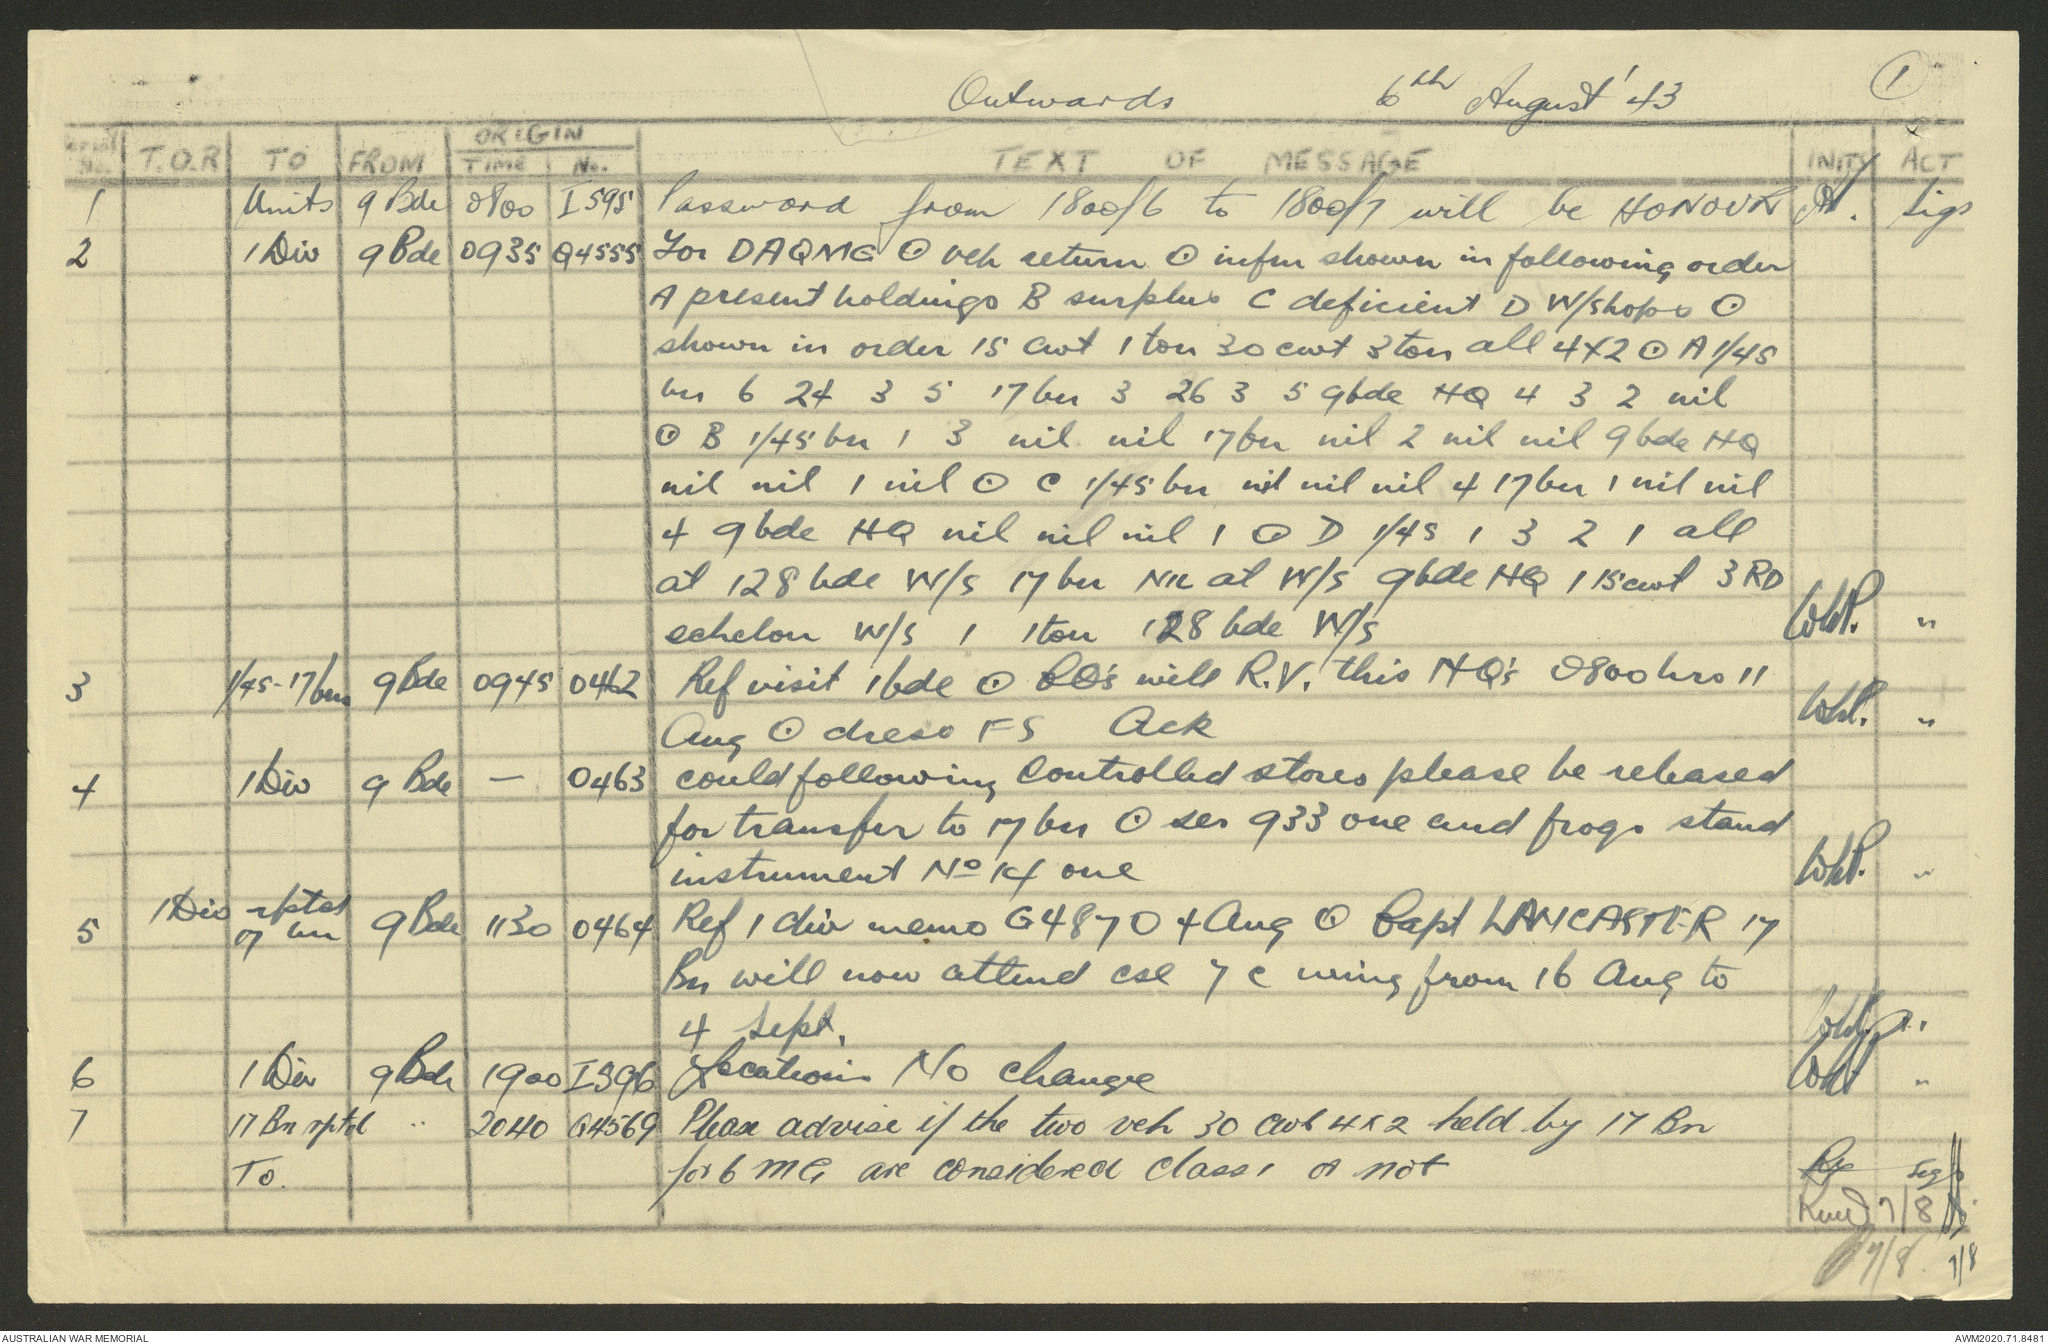 Outwards 6th August '43 1
Serial No. T.O.R TO FROM ORIGIN TIME No. TEXT OF MESSAGE INITS ACT
1 Units 9 Bde 0800 I595 Password from 1800/6 to 1800/7 will be HONOUR Sigs
2 1 Div 9 Bde 0935 Q4555 For DAQMG ⊙ veh return ⊙ infm shown in following order
A present holdings B surplus C deficient D W/shops ⊙
shown in order 15 cwt 1 ton 30 cwt 3 ton all 4x2 ⊙ A 1/45
bn 6 24 3 5 17 bn 3 26 3 5 9 bde HQ 4 3 2 nil
⊙ B 1/45 bn 1 3 nil nil 17 bn nil 2 nil nil 9 bde HQ
nil nil 1 nil ⊙ C 1/45 bn nil nil nil 4 17 bn 1 nil nil
4 9 bde HQ nil nil nil 1 ⊙ D 1/45 1 3 2 1 all
at 128 bde W/S 17 bn NIL at W/S 9 bde HQ 1 15 cwt 3 RD
echelon W/S 1 1 ton 128 bde W/S WHP. "
3 1/45-17 bns 9 Bde 0945 0462 Ref visit 1 bde ⊙ CO's will R.V. this HQ's 0800 hrs 11
Aug ⊙ dress FS Ack WHP. "
4 1 Div 9 Bde — 0463 could following Controlled stores please be released
for transfer to 17 bn ⊙ ser 933 one and frogs stand
instrument No 14 one WHP. "
5 1 Div rptd 17 bn 9 Bde 1130 0464 Ref 1 div memo G4870 4 Aug ⊙ Capt LANCASTER 17
Bn will now attend cse 7 C wing from 16 Aug to
4 Sept. "
6 1 Div 9 Bde 1900 I596 Locations No change "
7 17 Bn rptd " 2040 Q4569 Please advise if the two veh 30 cwt 4x2 held by 17 Bn
To. for 6 MG are considered class 1 or not Sigs
7/8
7/8. 7/8
AUSTRALIAN WAR MEMORIAL AWM2020.71.8481